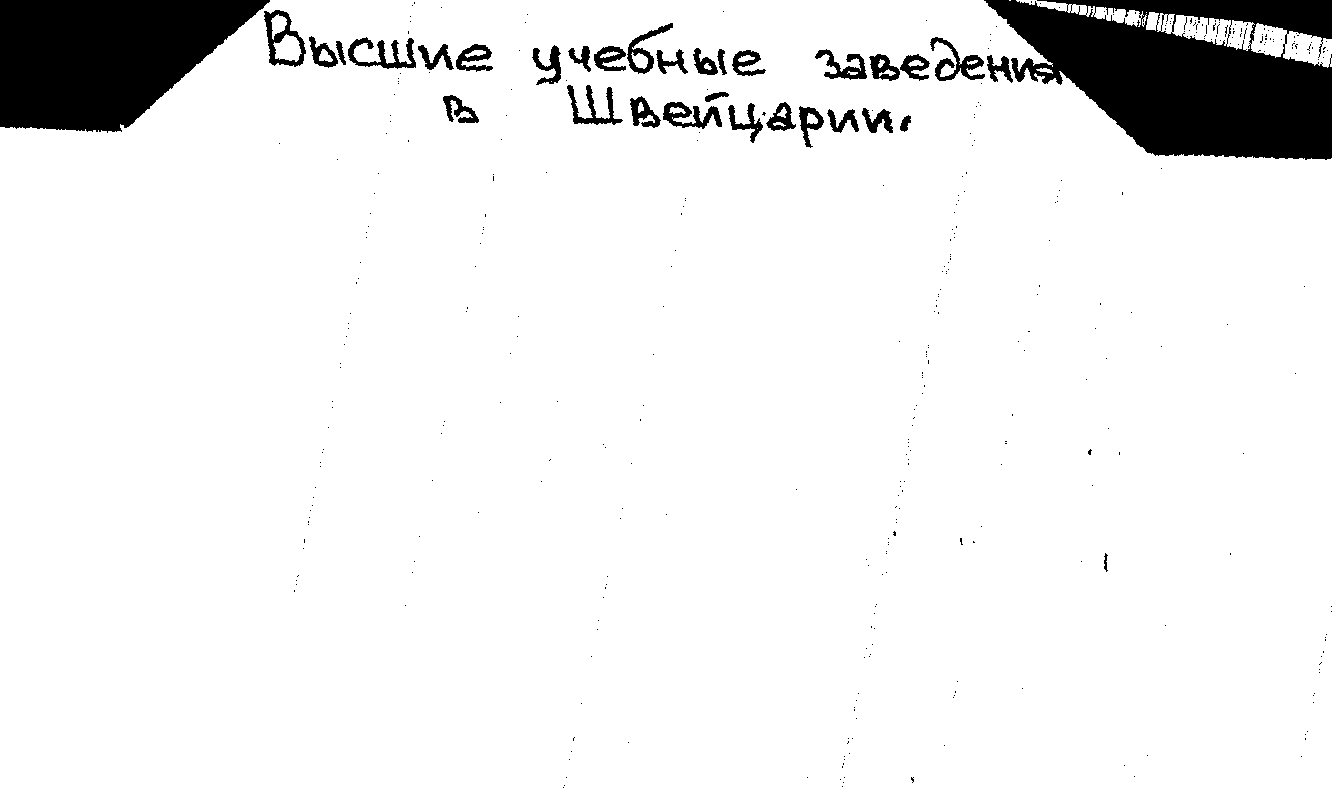 Высшие учебные заведения
в Швейцарии.